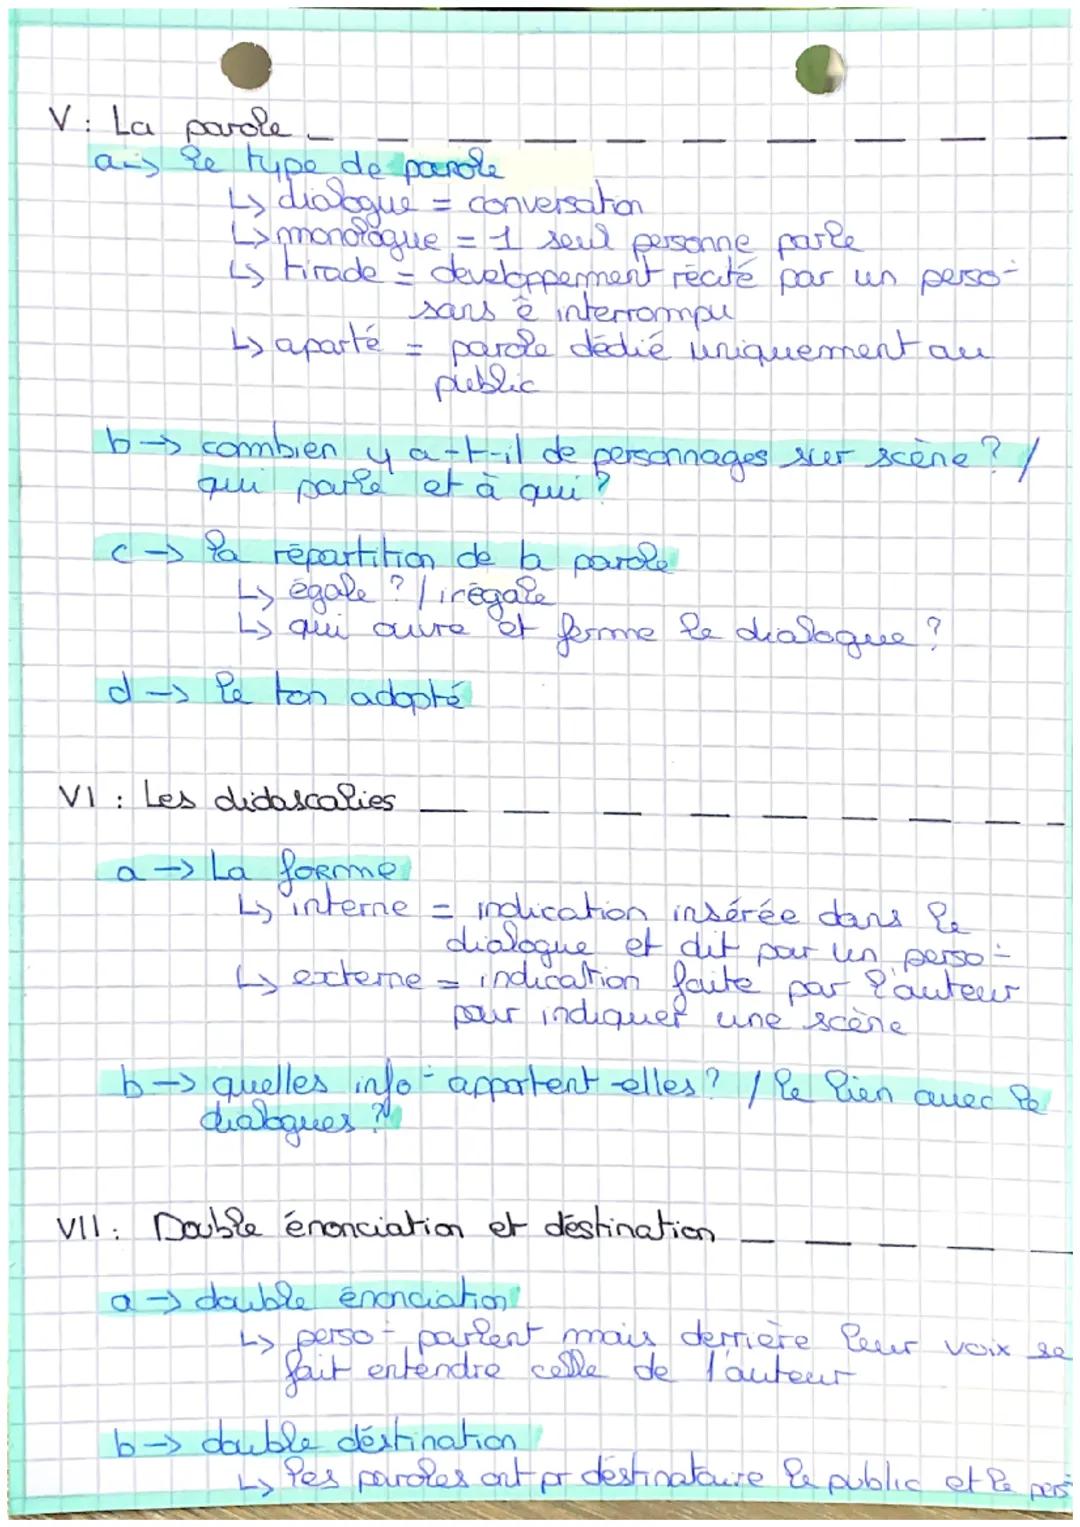 V : La parole
a → le type de parole
↳ dialogue = conversation
↳ monologue = 1 seul personne parle
↳ tirade = developpement récité par un perso-
sans ê interrompu
↳ aparté = parole dédié uniquement au
public
b → combien y a-t-il de personnages sur scène ? /
qui parle et à qui ?
c → la répartition de la parole
↳ égale ? / irégale
↳ qui ouvre et ferme le dialogue ?
d → le ton adopté
VI : Les didascalies
a → La forme
↳ interne = indication insérée dans le
dialogue et dit par un perso-
↳ externe = indication faite par l'auteur
pour indiquer une scène
b → quelles info- apportent-elles ? / le lien avec le
dialogues ?
VII : Double énonciation et déstination
a → double énonciation
↳ perso- parlent mais derrière leur voix se
fait entendre celle de l'auteur
b → double déstination
↳ les paroles ont pr déstinataire le public et le pers